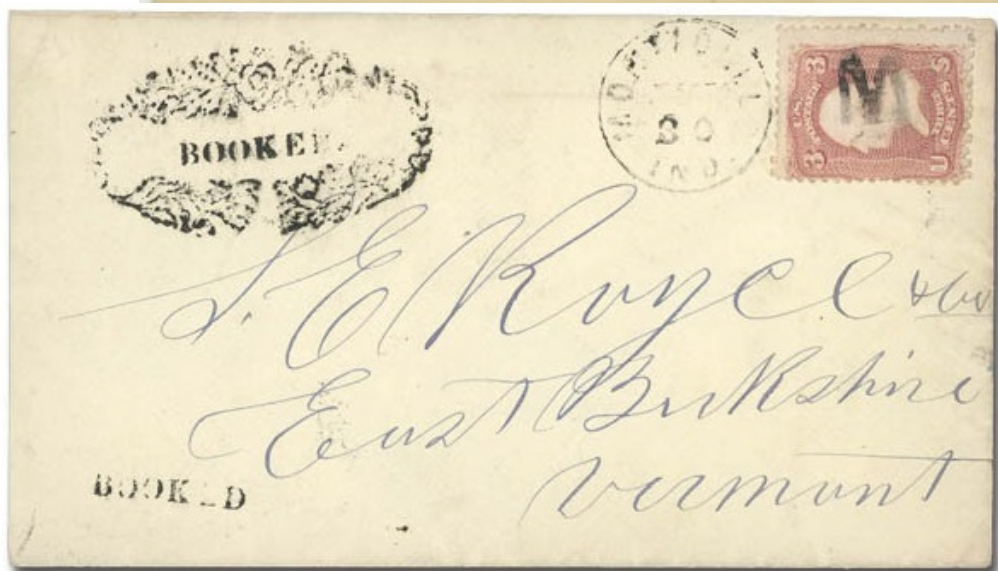 BOOKED
30
IND.
W
3 3
U.S. POSTAGE
U S
S. E. Royce & Co
East Berkshire
Vermont
BOOKED